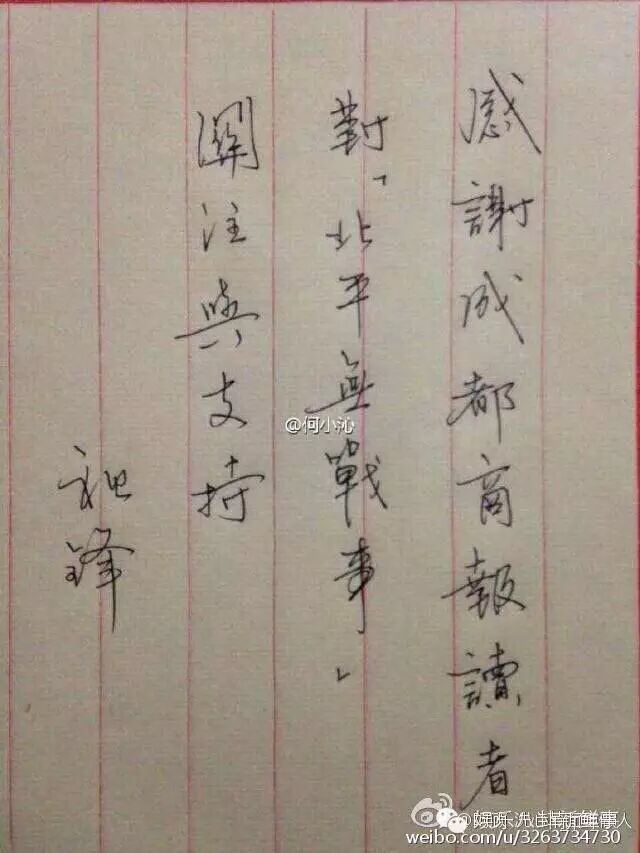 感謝成都商報讀者
對「北平無戰事」
關注與支持
祖鋒
@何小沁
weibo.com/u/3263734730